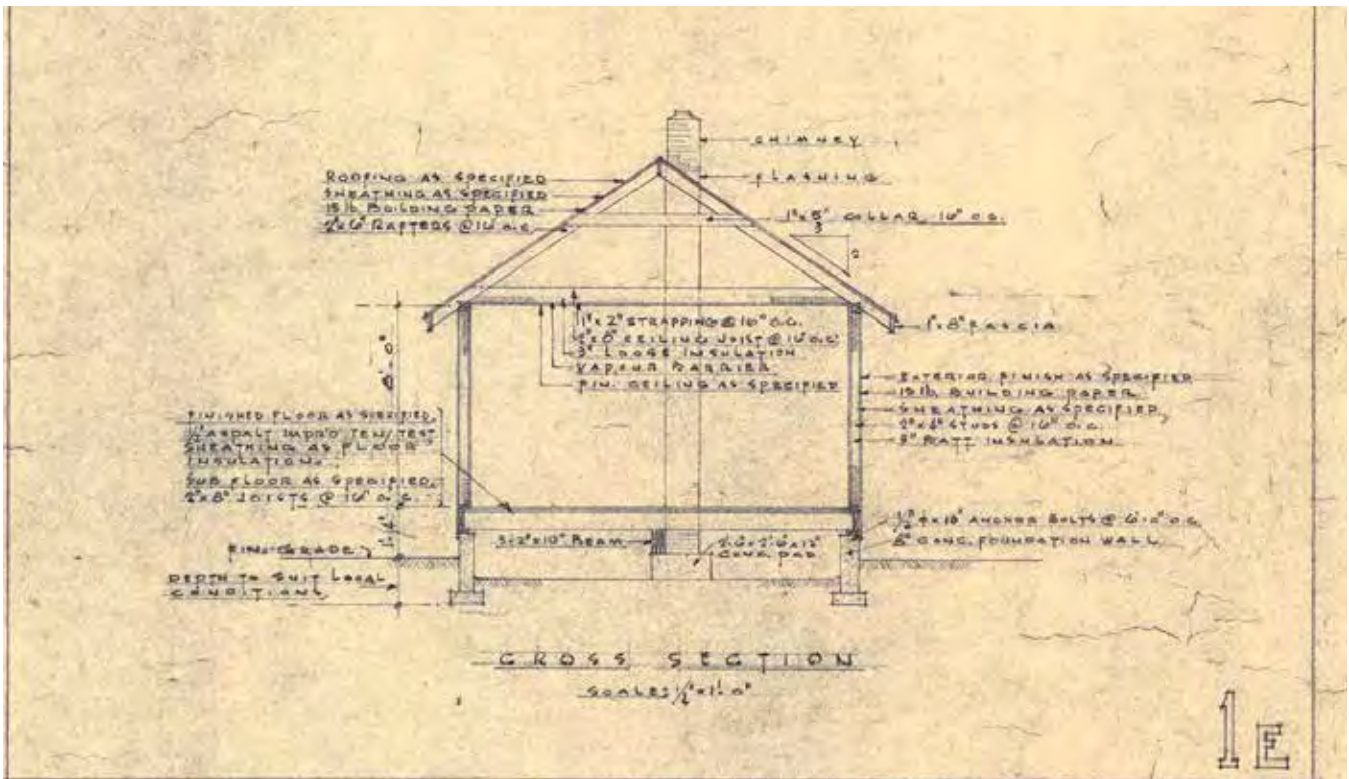 CHIMNEY
FLASHING
ROOFING AS SPECIFIED
SHEATHING AS SPECIFIED
15 lb. BUILDING PAPER
2"x6" RAFTERS @ 16" O.C.
COLLAR 16" O.C.
3
2
1"x2" STRAPPING @ 16" O.C.
CEILING JOIST @ 16" O.C.
3" LOOSE INSULATION
VAPOUR BARRIER
FIN. CEILING AS SPECIFIED
1"x8" FASCIA
8'-0"
EXTERIOR FINISH AS SPECIFIED
15 lb. BUILDING PAPER
SHEATHING AS SPECIFIED
2"x4" STUDS @ 16" O.C.
BATT INSULATION
FINISHED FLOOR AS SPECIFIED,
1/2" ASPALT IMPR'D TEN/TEST
SHEATHING AS FLOOR
INSULATION.
SUB FLOOR AS SPECIFIED,
2"x8" JOISTS @ 16" O.C.
FIN. GRADE
DEPTH TO SUIT LOCAL
CONDITIONS
3-2"x10" BEAM
2'-6"x2'-6"x12"
CONC. PAD
ANCHOR BOLTS @ 6'-0" O.C.
8" CONC. FOUNDATION WALL
CROSS SECTION
SCALE: 1/2"=1'-0"
1E